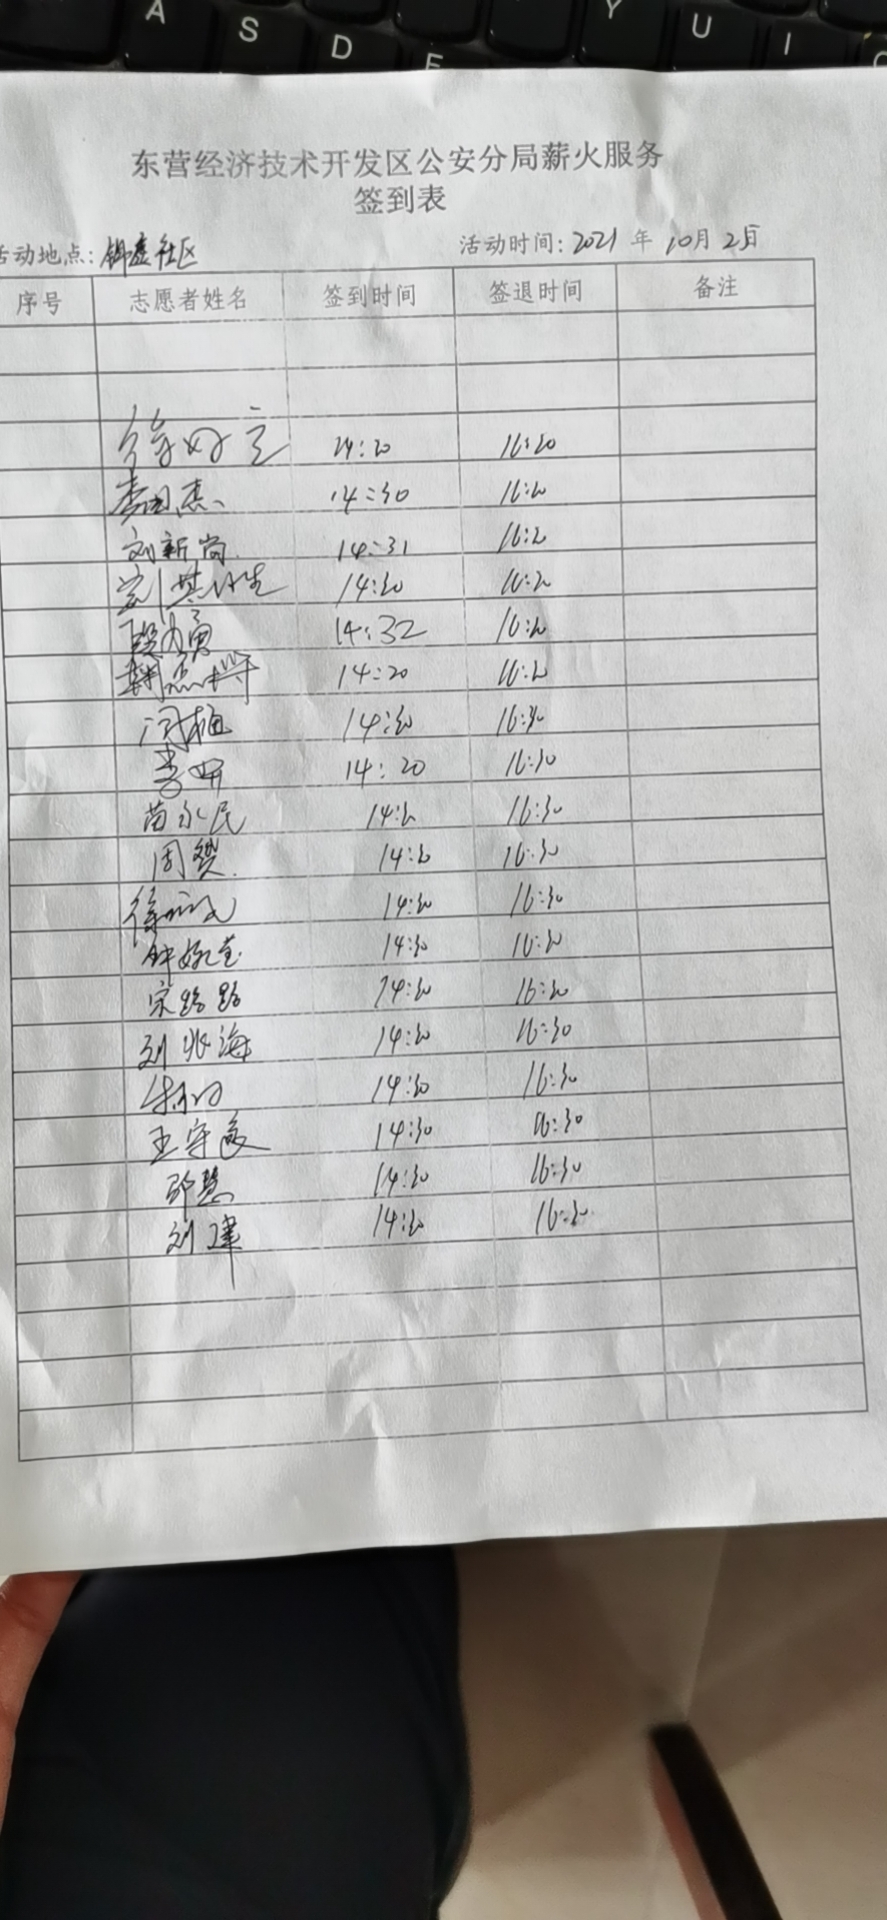 A S D E Y U I
东营经济技术开发区公安分局薪火服务
签到表
活动地点: 锦鑫社区 活动时间: 2021 年 10月 2日
序号 志愿者姓名 签到时间 签退时间 备注
14:20 16:20
李国杰 14:30 16:20
刘新尚 14:31 16:20
14:30 16:20
14:32 16:20
14:20 16:20
闫梅 14:30 16:30
李妍 14:20 16:30
苗永民 14:30 16:30
周赞 14:30 16:30
徐 14:30 16:30
钟婉莹 14:30 16:30
宋路路 14:30 16:30
刘兆海 14:30 16:30
14:30 16:30
王守 14:30 16:30
邵慧 14:30 16:30
刘建 14:30 16:30